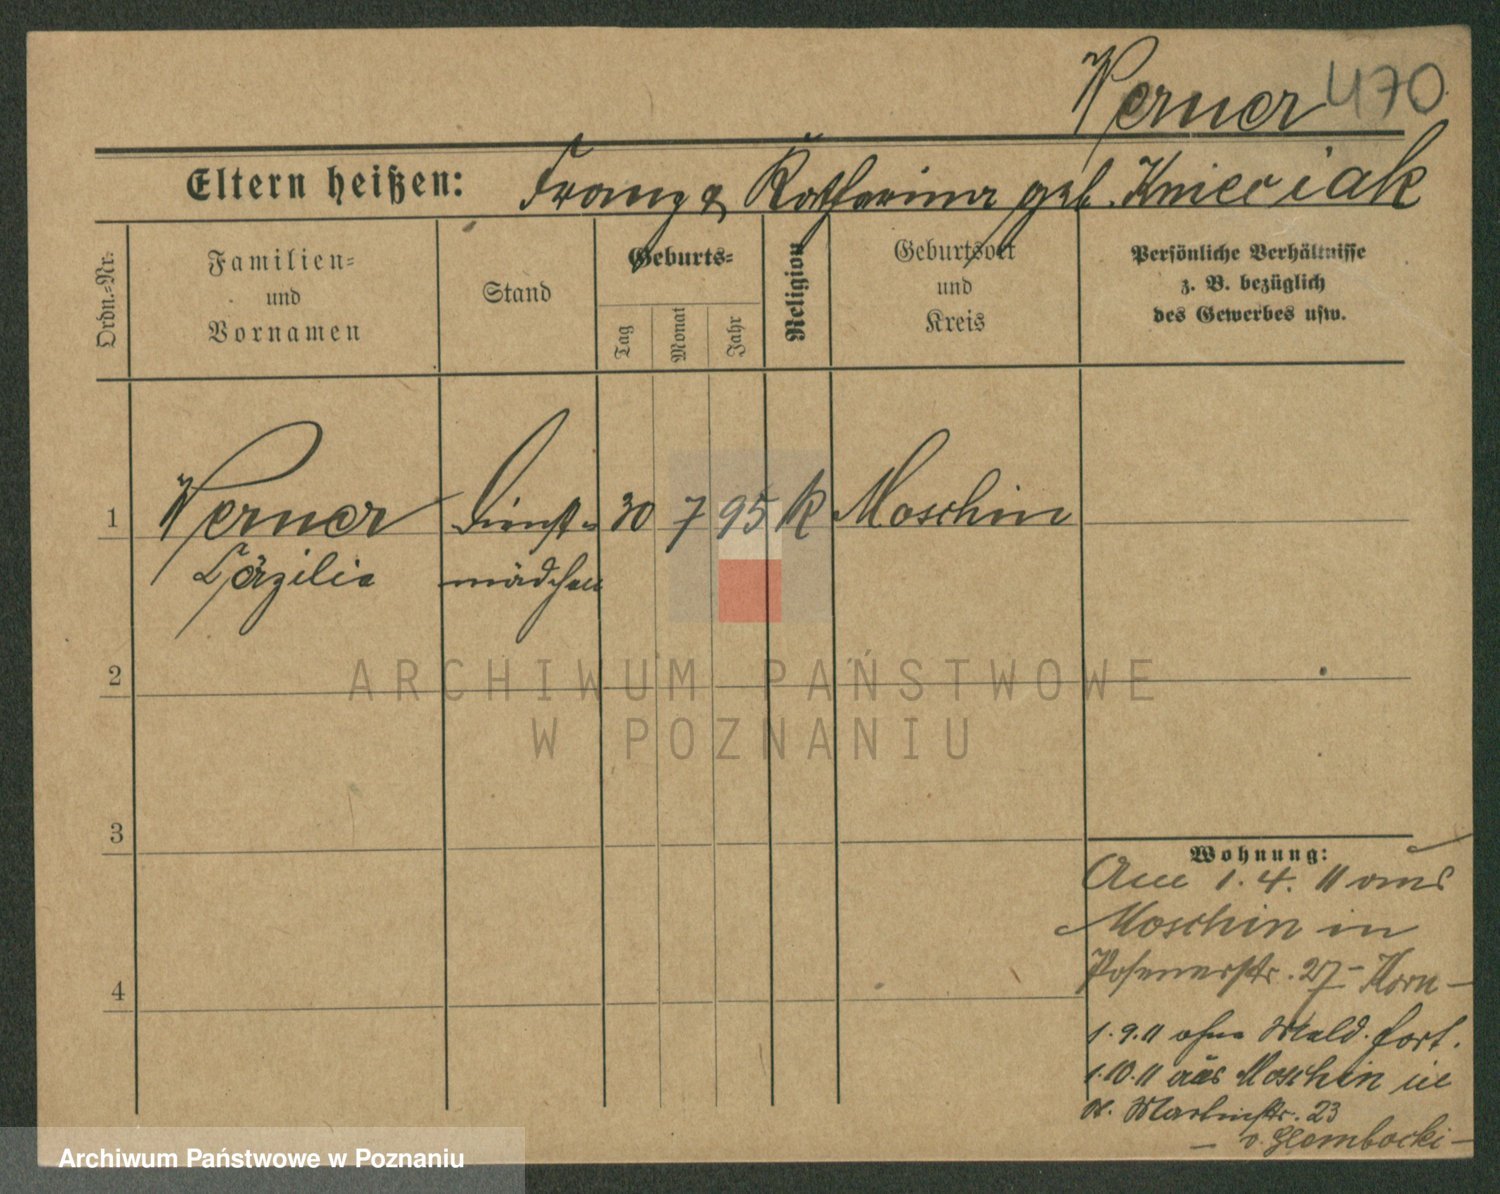 Werner 470
Eltern heißen: Franz & Katharina geb. Knieciak
Ordn.-Nr.
Familien-
und
Vornamen
Stand
Geburts-
Tag
Monat
Jahr
Religion
Geburtsort
und
Kreis
Persönliche Verhältnisse
z. B. bezüglich
des Gewerbes usw.
1 Werner Dienst- 30 7 95 K Moschin
Cäzilia mädchen
2
3
Wohnung:
Am 1.4.11 aus
Moschin in
Posenerstr. 27 - Korn -
4
1.9.11 ohne Meld. fort.
1.10.11 aus Moschin in
St. Martinstr. 23
- v. Glembocki -
ARCHIWUM PAŃSTWOWE
W POZNANIU
Archiwum Państwowe w Poznaniu